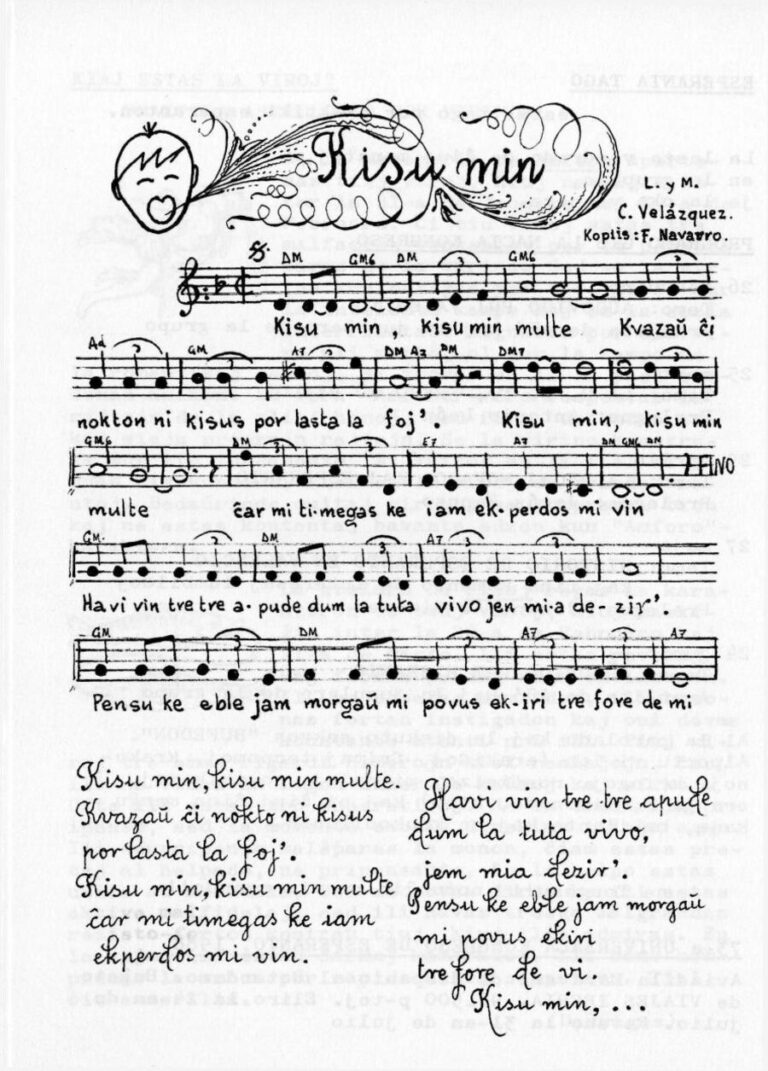 Kisu min
L. y M.
C. Velázquez.
Kopiis: F. Navarro.
DM GM6 DM GM6
Kisu min, Kisu min multe Kvazaŭ ĉi
GM A7 DM A7 DM DM7
nokton ni kisus por lasta la foj'. Kisu min, kisu min
GM6 DM E7 A7 DM GM6 DM FINO
multe ĉar mi timegas ke iam ek-perdos mi vin
GM DM A7
Havi vin tre tre a-pude dum la tuta vivo jen mi-a de-zir'
GM DM A7 A7
Pensu ke eble jam morgaŭ mi povus ek-iri tre fore de mi
Kisu min, kisu min multe.
Kvazaŭ ĉi nokto ni kisus
por lasta la foj'.
Kisu min, kisu min multe
ĉar mi timegas ke iam
ekperdos mi vin.
Havi vin tre tre apude
dum la tuta vivo,
jem mia dezir'.
Pensu ke eble jam morgaŭ
mi povus ekiri
tre fore de vi.
Kisu min, ...